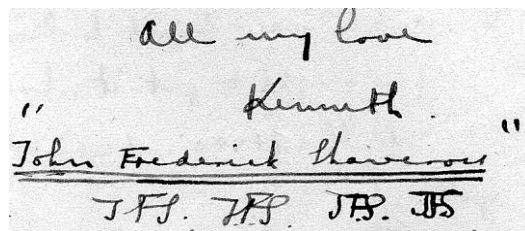 all my love
Kenneth.
" John Frederick Shawcross "
JFS. JFS. JFS. JFS